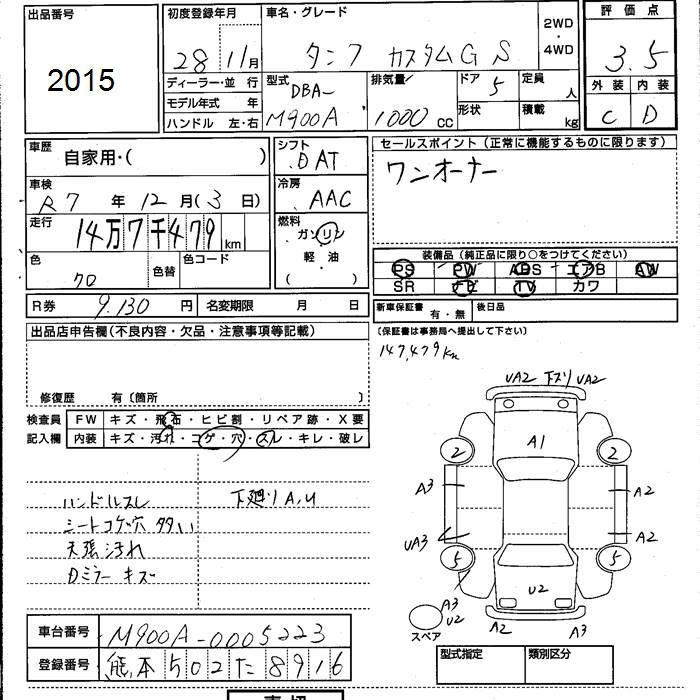 出品番号
2015
初度登録年月
28年11月
車名・グレード
タンク カスタムG S
2WD
・
4WD
評価点
3.5
外装 内装
C D
ディーラー・並 行
モデル年式 年
ハンドル 左・右
型式
DBA-
M900A
排気量
1000 cc
ドア 5
形状
定員 人
積載 kg
車歴
自家用・( )
車検
R7 年 12 月 ( 3 日)
走行
14万7千479 km
色
クロ
色替
色コード
シフト
DAT
冷房
AAC
燃料
ガソリン
・
軽 油
( )
セールスポイント(正常に機能するものに限ります)
ワンオーナー
装備品(純正品に限り○をつけてください)
PS PW ABS エアB AW
SR ナビ TV カワ
R券 9,130 円
名変期限 月 日
新車保証書 有・無
後日品
(保証書は事務局へ提出して下さい)
147,479km
出品店申告欄(不良内容・欠品・注意事項等記載)
修復歴 有〔箇所 〕
検査員
記入欄
FW キズ・飛石・ヒビ割・リペア跡・X要
内装 キズ・汚れ・コゲ・穴・スレ・キレ・破レ
ハンドルスレ
シートコゲ穴 多い
天張汚れ
Dミラーキズ
下廻りA,U
UA2 下スリ UA2
A1
2 2
A3 A2
UA3 A2
5 5
U2
A3
U2
スペア
A2 A3
車台番号 M900A-0005223
登録番号 熊本 502 た 8916
型式指定
類別区分